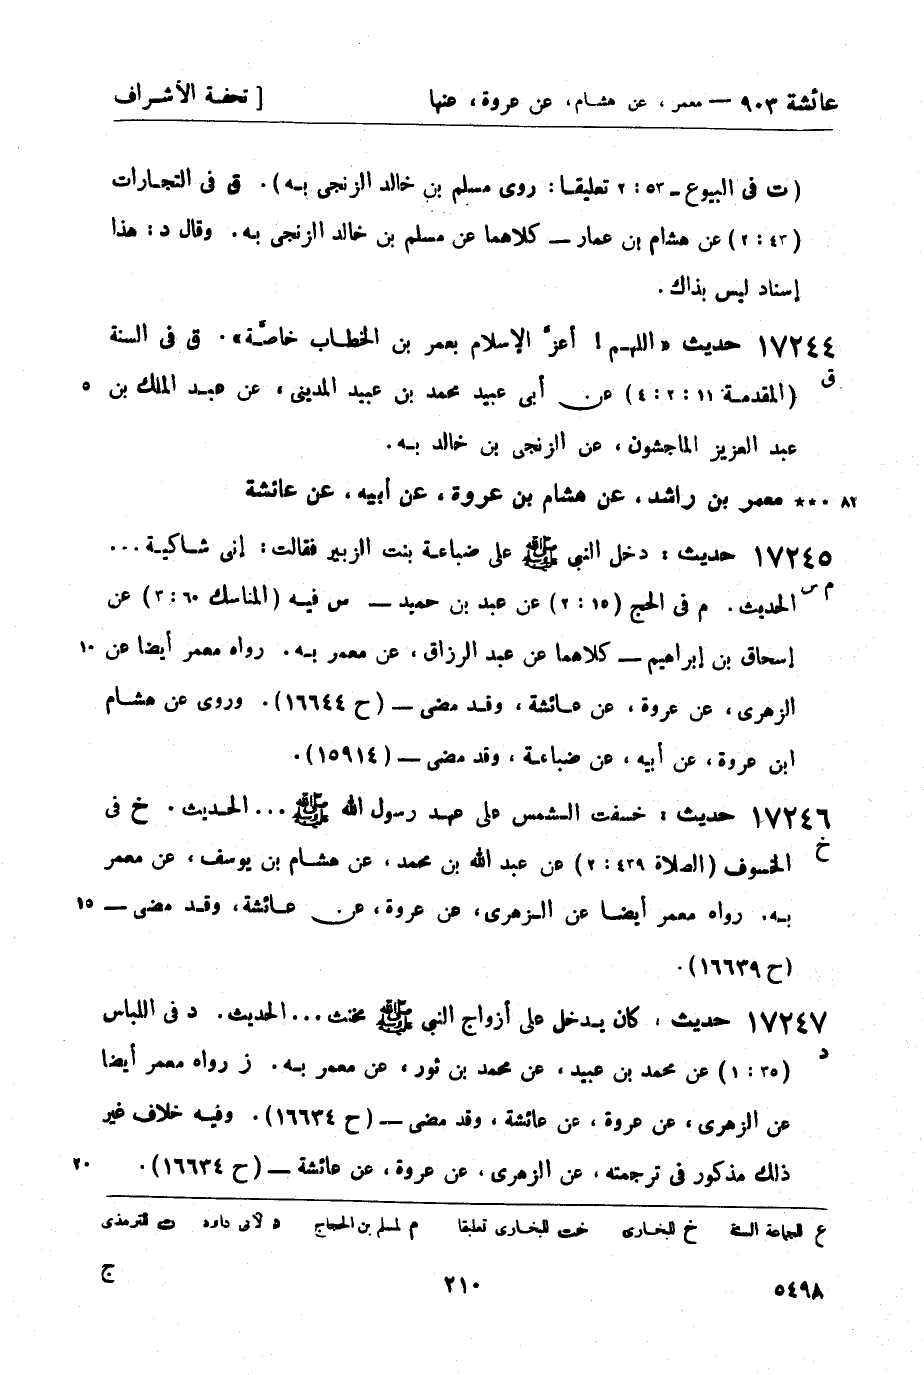 عائشة ٩٠٣ — معمر، عن هشام، عن عروة، عنها [ تحفة الأشراف
(ت فى البيوع ـ ٥٣ : ٢ تعليقا: روى مسلم بن خالد الزنجى به). ق فى التجارات
(٤٣ : ٢) عن هشام بن عمار — كلاهما عن مسلم بن خالد الزنجى به. وقال د: هذا
إسناد ليس بذاك.
١٧٢٤٤ حديث «اللهم! أعزَّ الإسلام بعمر بن الخطاب خاصَّة». ق فى السنة
ق
(المقدمة ١١ : ٢ : ٤) عن أبى عبيد محمد بن عبيد المدينى، عن عبد الملك بن ٥
عبد العزيز الماجشون، عن الزنجى بن خالد به.
٨٢ *** معمر بن راشد، عن هشام بن عروة، عن أبيه، عن عائشة
١٧٢٤٥ حديث: دخل النبي ﷺ على ضباعة بنت الزبير فقالت: إنى شاكية...
م س
الحديث. م فى الحج (١٥ : ٢) عن عبد بن حميد — س فيه (المناسك ٦٠ : ٣) عن
إسحاق بن إبراهيم — كلاهما عن عبد الرزاق، عن معمر به. رواه معمر أيضا عن ١٠
الزهرى، عن عروة، عن عائشة، وقد مضى — (ح ١٦٦٤٤). وروى عن هشام
ابن عروة، عن أبيه، عن ضباعة، وقد مضى — (١٥٩١٤).
١٧٢٤٦ حديث: خسفت الشمس على عهد رسول الله ﷺ... الحديث. خ فى
خ
الخسوف (الصلاة ٤٣٩ : ٢) عن عبد الله بن محمد، عن هشام بن يوسف، عن معمر
به. رواه معمر أيضا عن الزهرى، عن عروة، عن عائشة، وقد مضى — ١٥
(ح ١٦٦٣٩).
١٧٢٤٧ حديث، كان يدخل على أزواج النبي ﷺ مخنث... الحديث. د فى اللباس
د
(٣٥ : ١) عن محمد بن عبيد، عن محمد بن ثور، عن معمر به. ز رواه معمر أيضا
عن الزهرى، عن عروة، عن عائشة، وقد مضى — (ح ١٦٦٣٤). وفيه خلاف غير
ذلك مذكور فى ترجمته، عن الزهرى، عن عروة، عن عائشة — (ح ١٦٦٣٤). ٢٠
ع للجماعة الستة خ للبخارى خت للبخارى تعليقا م لمسلم بن الحجاج د لأبى داود ت للترمذى
ج
٥٤٩٨ ٢١٠